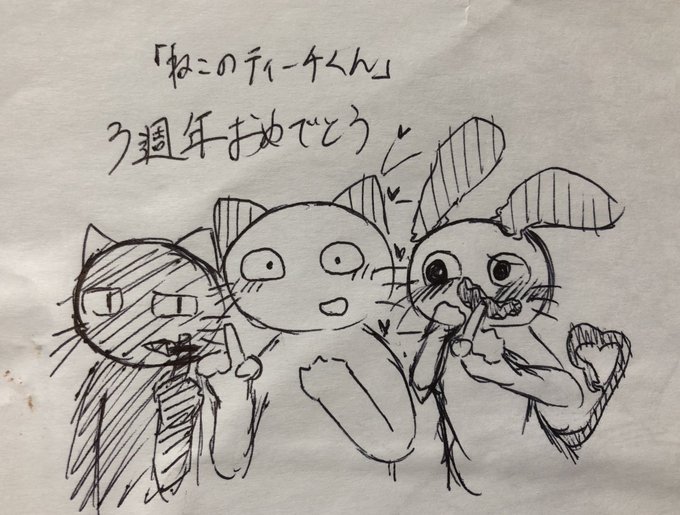 「ねこのティーチくん」
3週年おめでとう